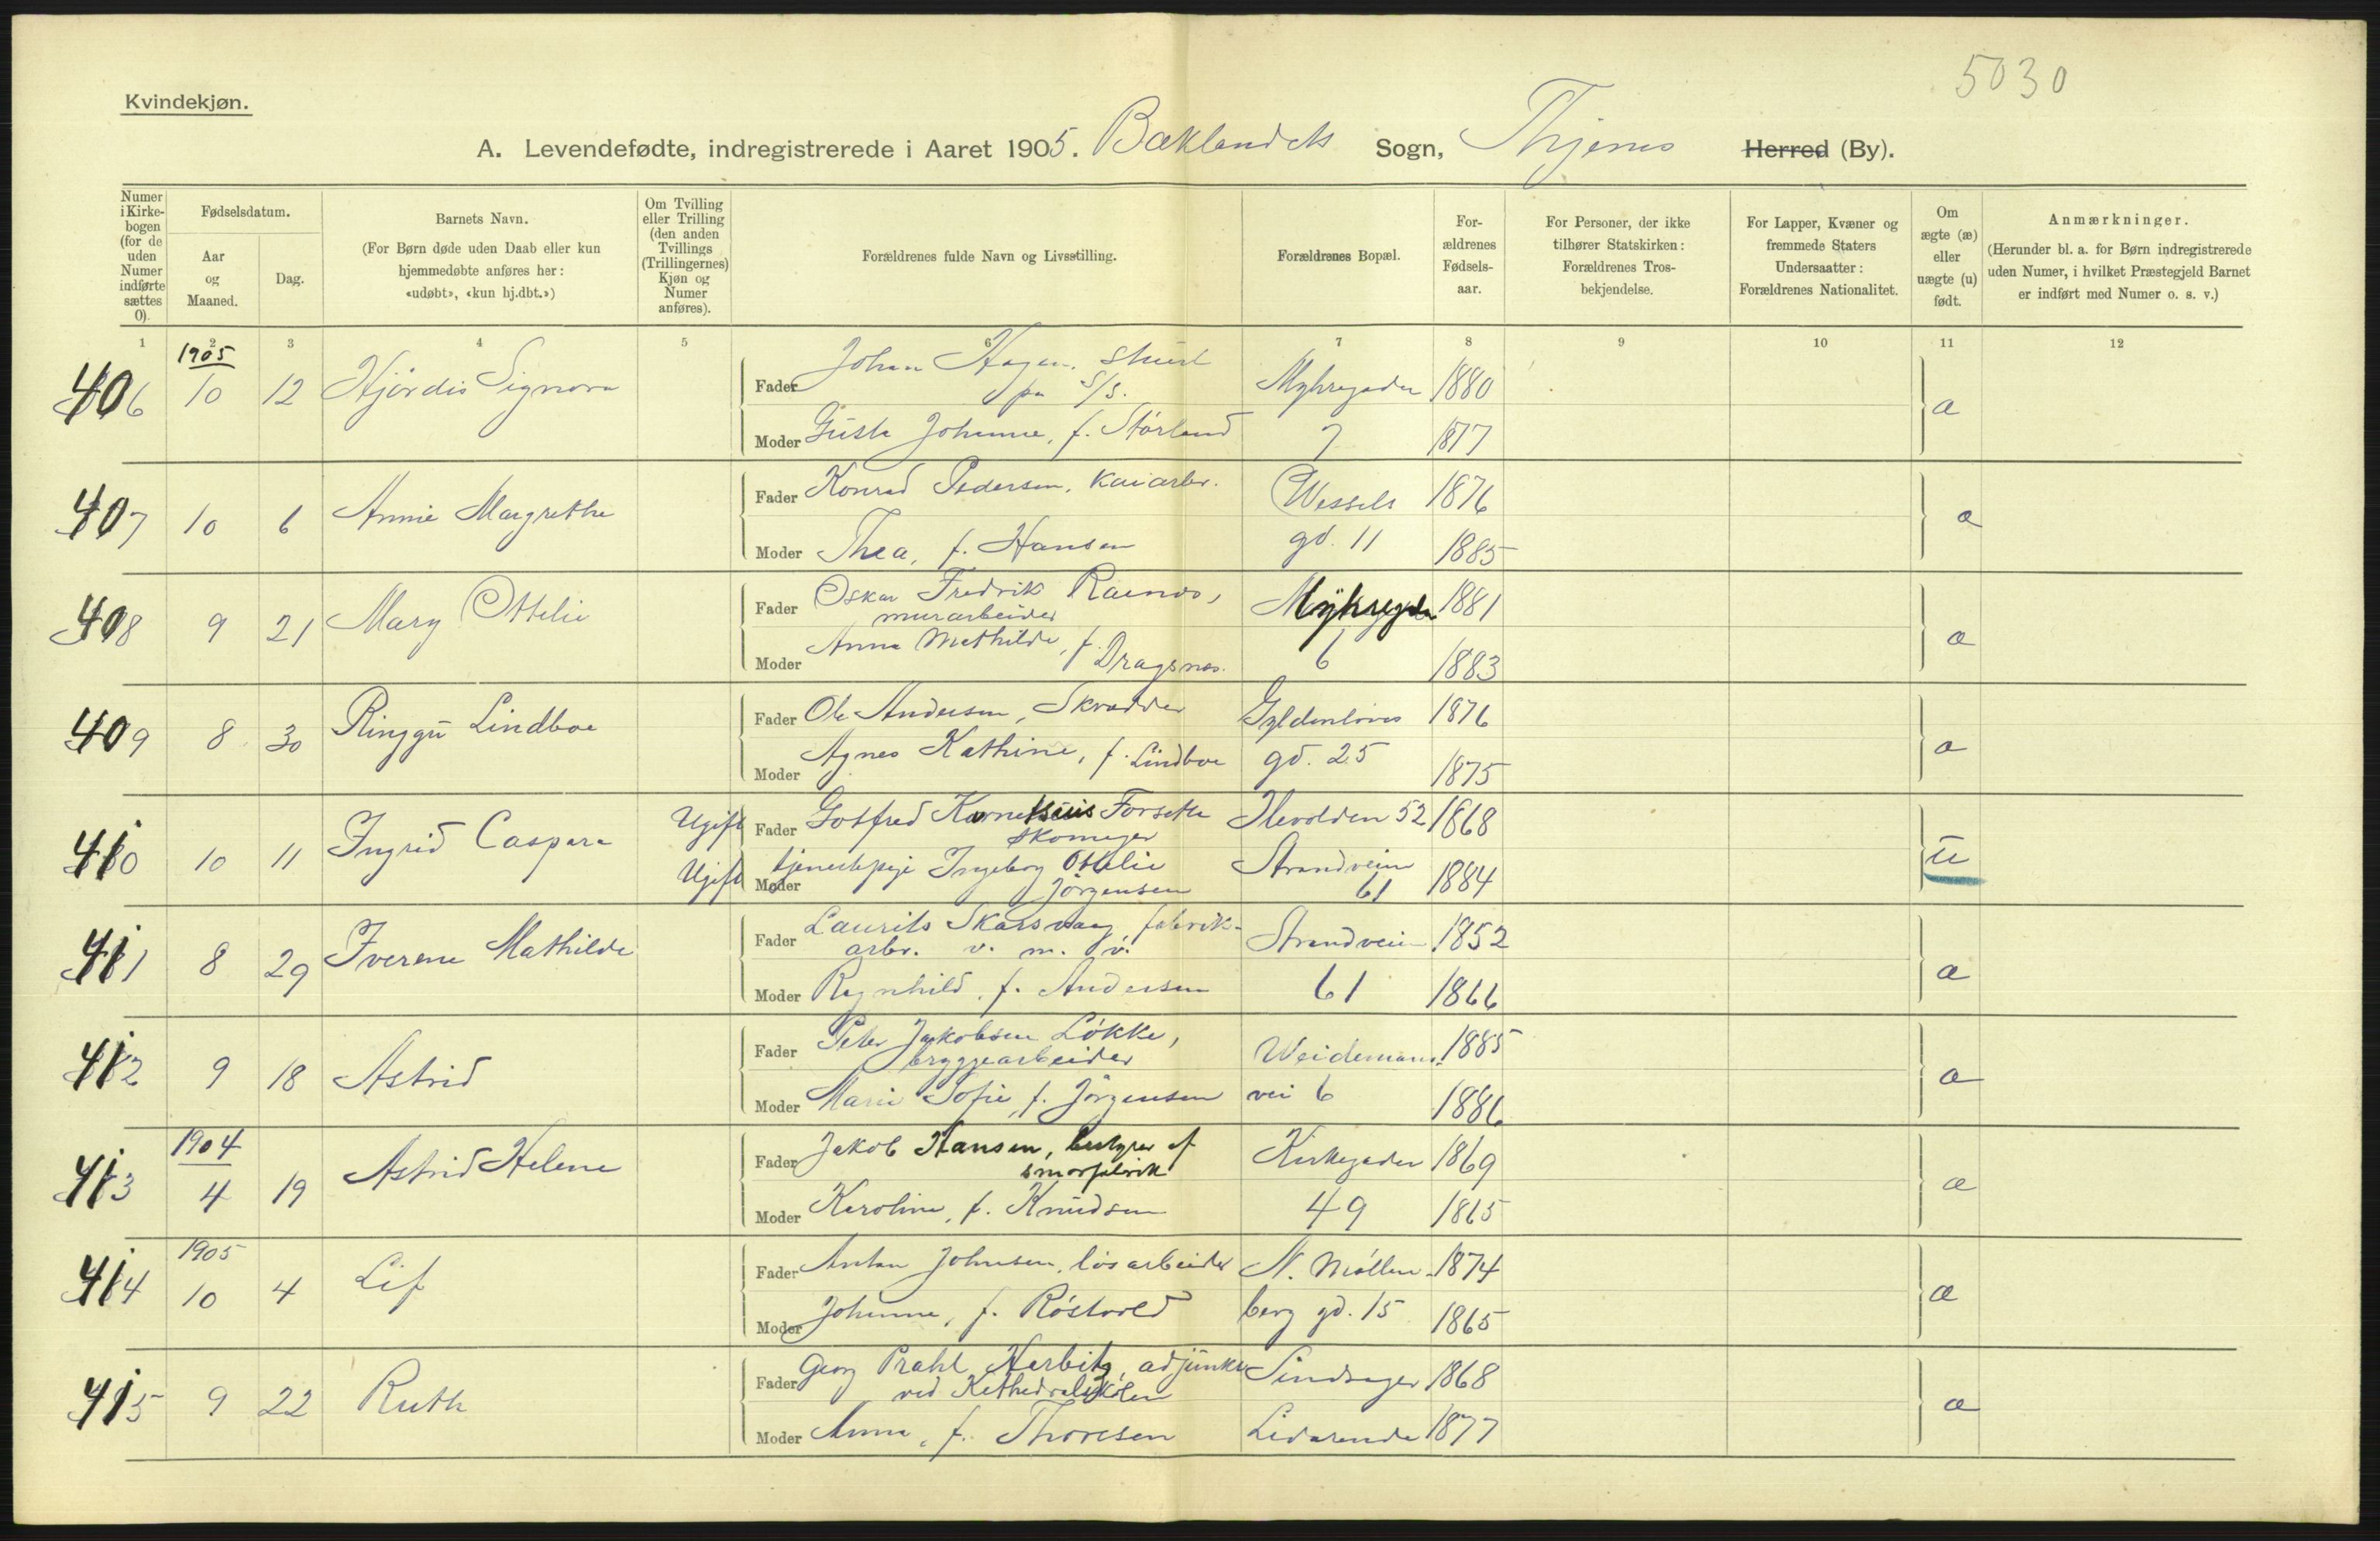 5030
Kvindekjøn.
A. Levendefødte, indregistrerede i Aaret 1905. Baklandets Sogn, Thjems Herred (By).
Numer i Kirkebogen (for de uden Numer indførte sættes 0).
Fødselsdatum.
Aar og Maaned.
Dag.
Barnets Navn.
(For Børn døde uden Daab eller kun hjemmedøbte anføres her: «udøbt», «kun hj.dbt.»)
Om Tvilling eller Trilling (den anden Tvillings (Trillingernes) Kjøn og Numer anføres).
Forældrenes fulde Navn og Livsstilling.
Forældrenes Bopæl.
Forældrenes Fødselsaar.
For Personer, der ikke tilhører Statskirken: Forældrenes Trosbekjendelse.
For Lapper, Kvæner og fremmede Staters Undersaatter: Forældrenes Nationalitet.
Om ægte (æ) eller uægte (u) født.
Anmærkninger.
(Herunder bl. a. for Børn indregistrerede uden Numer, i hvilket Præstegjeld Barnet er indført med Numer o. s. v.)
1 2 3 4 5 6 7 8 9 10 11 12
1905
406 10 12 Hjördis Signora
Fader Johan Hagen, stuert på S/S. Myhregaden 1880 æ
Moder Gusta Johanne, f. Störland 7 1877
407 10 6 Annie Margrethe
Fader Konrad Pedersen, kaiarbr. Wessels 1876 æ
Moder Thea, f. Hansen gd. 11 1885
408 9 21 Mary Ottelie
Fader Oskar Fredrik Raenos, murarbeider Myhregden 1881 æ
Moder Anna Mathilde, f. Dragsnes. 6 1883
409 8 30 Ringgu Lindboe
Fader Ole Andersen, Skrædder Gyldenløves 1876 æ
Moder Agnes Kathine, f. Lindboe gd. 25 1875
410 10 11 Ingrid Caspara
Ugift Fader Gotfred Kornelius Forseth skomager Ilevolden 52 1868 u
Ugift Moder tjenestepige Ingeborg Ottelie Jörgensen Strandveien 61 1884
411 8 29 Iverene Mathilde
Fader Laurits Skarsvaag, fabrikarbr. v. m. v. Strandveien 1852 æ
Moder Ragnhild, f. Andersen 61 1866
412 9 18 Astrid
Fader Peter Jakobsen Lökke, bryggearbeider Weidemans- 1885 æ
Moder Marie Sofie, f. Jörgensen vei 6 1886
1904
413 4 19 Astrid Helene
Fader Jakob Hansen, bestyrer af smørfabrik Kirkegaden 1869 æ
Moder Karoline, f. Knudsen 49 1865
1905
414 10 4 Lif
Fader Anton Johnsen, løsarbeider N. Möllen- 1874 æ
Moder Johanne, f. Röstvold berg gd. 15 1865
415 9 22 Ruth
Fader Georg Prahl Harbitz, adjunkt ved Kathedralskolen Sindsager 1868 æ
Moder Anna, f. Thoresen Lidarende 1877